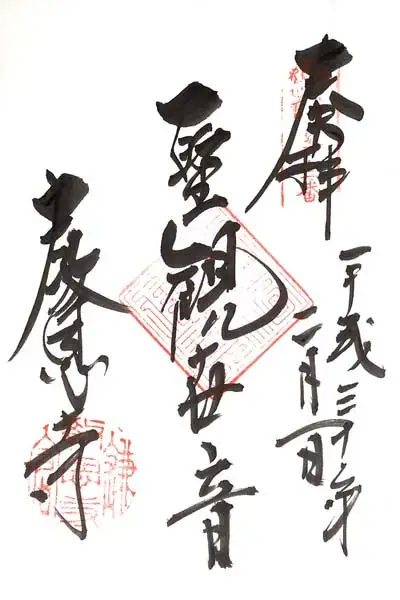 奉拝
平成三十年
二月一日
聖観世音
教恩寺